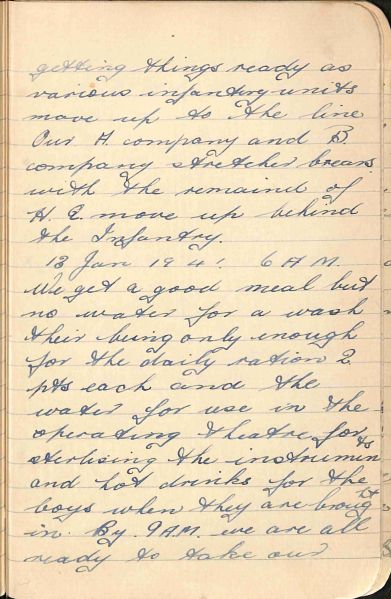 getting things ready as
various infantry units
move up to the line
Our A. company and B.
company stretcher brears
with the remaind of
H. Q. move up behind
the Infantry.
13 Jan 1941. 6 A M.
We get a good meal but
no water for a wash
their being only enough
for the daily ration 2
pts each and the
water for use in the
operating theatre for
sterlising the instruments
and hot drinks for the
boys when they are brought
in. By. 9 A.M. we are all
ready to take our